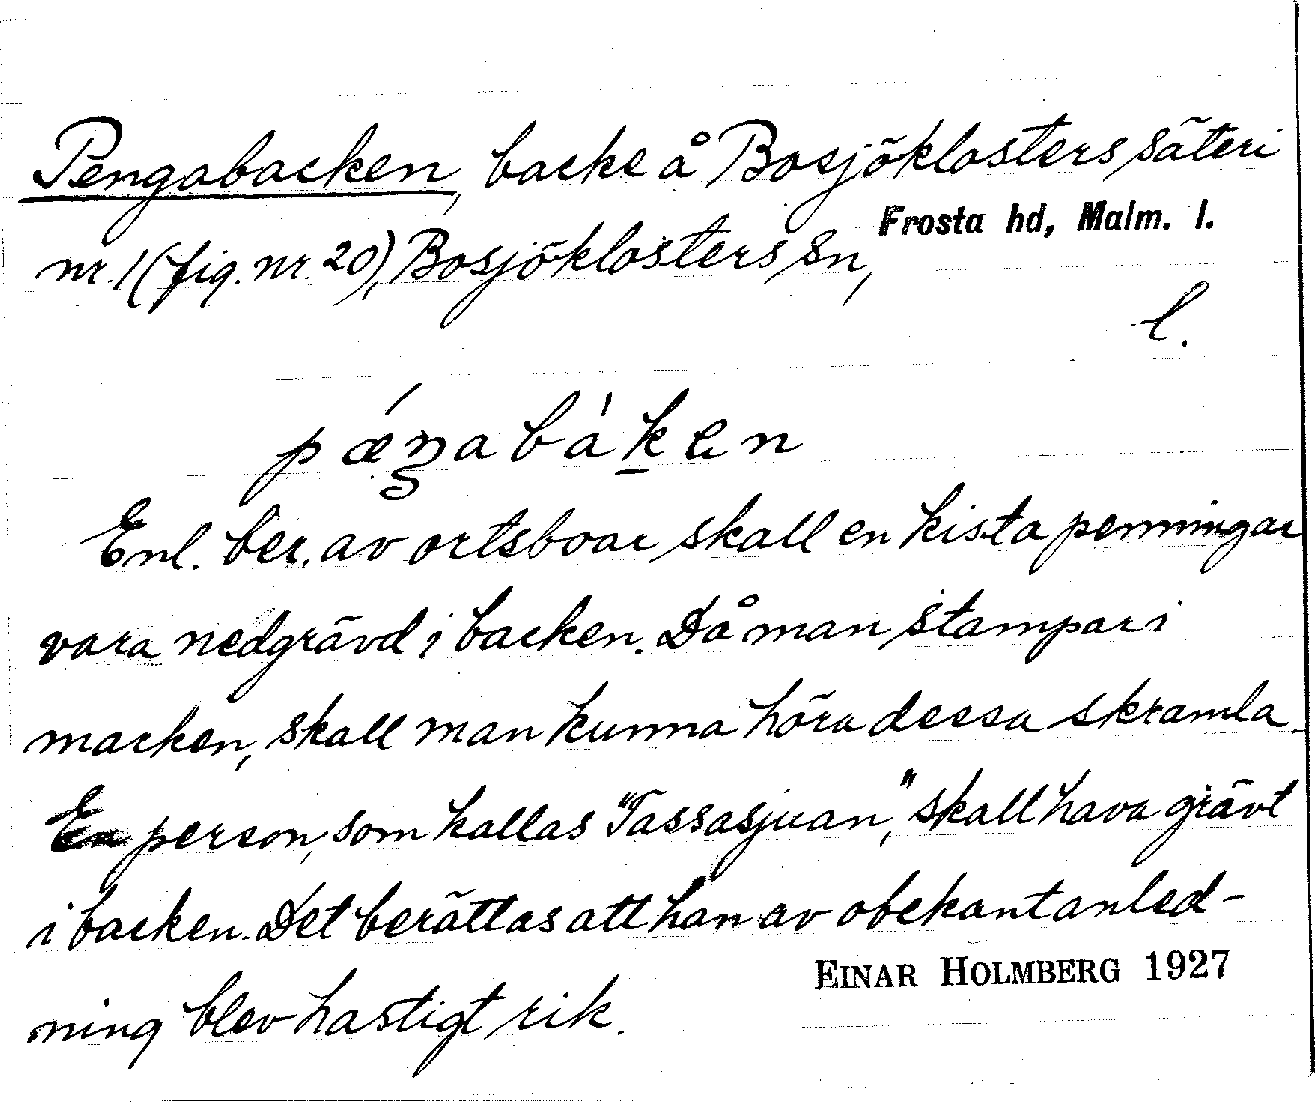 Pengabacken, backe å Bosjöklosters säteri
nr 1 (fig. nr 20), Bosjöklosters sn, Frosta hd, Malm. l.
l.
pǽŋabàken
Enl. ber. av ortsboar skall en kista penningar
vara nedgrävd i backen. Då man stampar i
macken, skall man kunna höra dessa skramla.
En person, som kallas "Tassasjuan", skall hava grävt
i backen. Det berättas att han av obekant anled-
ning blev hastigt rik.
EINAR HOLMBERG 1927